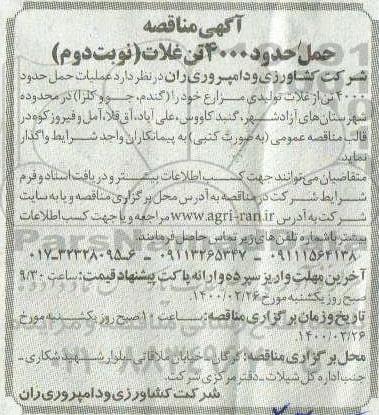 آگهی مناقصه
حمل حدود ۴۰۰۰ تن غلات (نوبت دوم)
شرکت کشاورزی و دامپروری ران در نظر دارد عملیات حمل حدود
۴۰۰۰ تن از غلات تولیدی مزارع خود را (گندم، جو و کلزا) در محدوده
شهرستان‌های آزادشهر، گنبد کاووس، علی‌آباد، آق‌قلا، آمل و فیروزکوه در
قالب مناقصه عمومی (به صورت کتبی) به پیمانکاران واجد شرایط واگذار
نماید.
متقاضیان می‌توانند جهت کسب اطلاعات بیشتر و دریافت اسناد و فرم
شرایط شرکت در مناقصه به آدرس محل برگزاری مناقصه و یا به سایت
شرکت به آدرس www.agri-ran.ir مراجعه و یا جهت کسب اطلاعات
بیشتر با شماره تلفن‌های زیر تماس حاصل فرمایند.
۰۹۱۱۱۵۶۴۱۳۸ - ۰۹۱۱۳۲۶۵۳۴۷ - ۶-۰۱۷-۳۲۳۲۸۰۹۵
آخرین مهلت واریز سپرده و ارائه پاکت پیشنهاد قیمت: ساعت ۹/۳۰
صبح روز یکشنبه مورخ ۱۴۰۰/۰۳/۲۶
تاریخ و زمان برگزاری مناقصه: ساعت ۱۰ صبح روز یکشنبه مورخ
۱۴۰۰/۰۳/۲۶
محل برگزاری مناقصه: گرگان - خیابان ملاقاتی - بلوار شهید شکاری -
جنب اداره کل شیلات - دفتر مرکزی شرکت.
شرکت کشاورزی و دامپروری ران